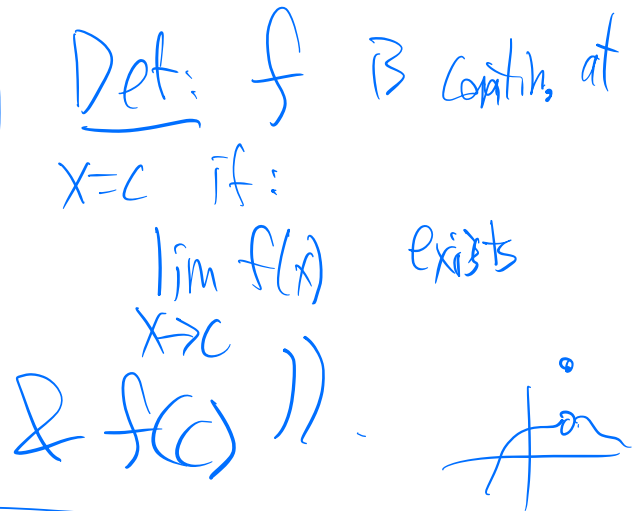 Def: f is contin, at
x=c if:
lim f(x) exists
x→c
& f(c) )) .